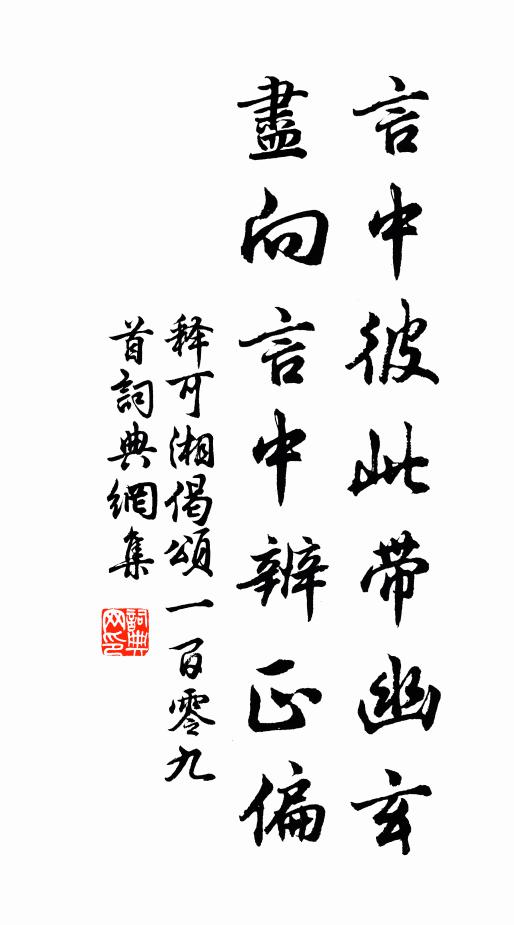 言中彼此带幽玄
盡向言中辨正偏
释可湘偈頌一百零九
首詞典網集
詞典
网印